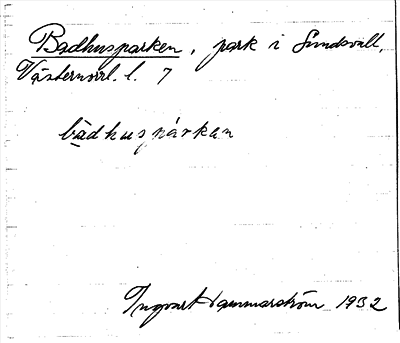 Badhusparken, park i Sundsvall,
Västernorrl. l. 7
bàdhuspárkan
Ingvar Hammarström 1932